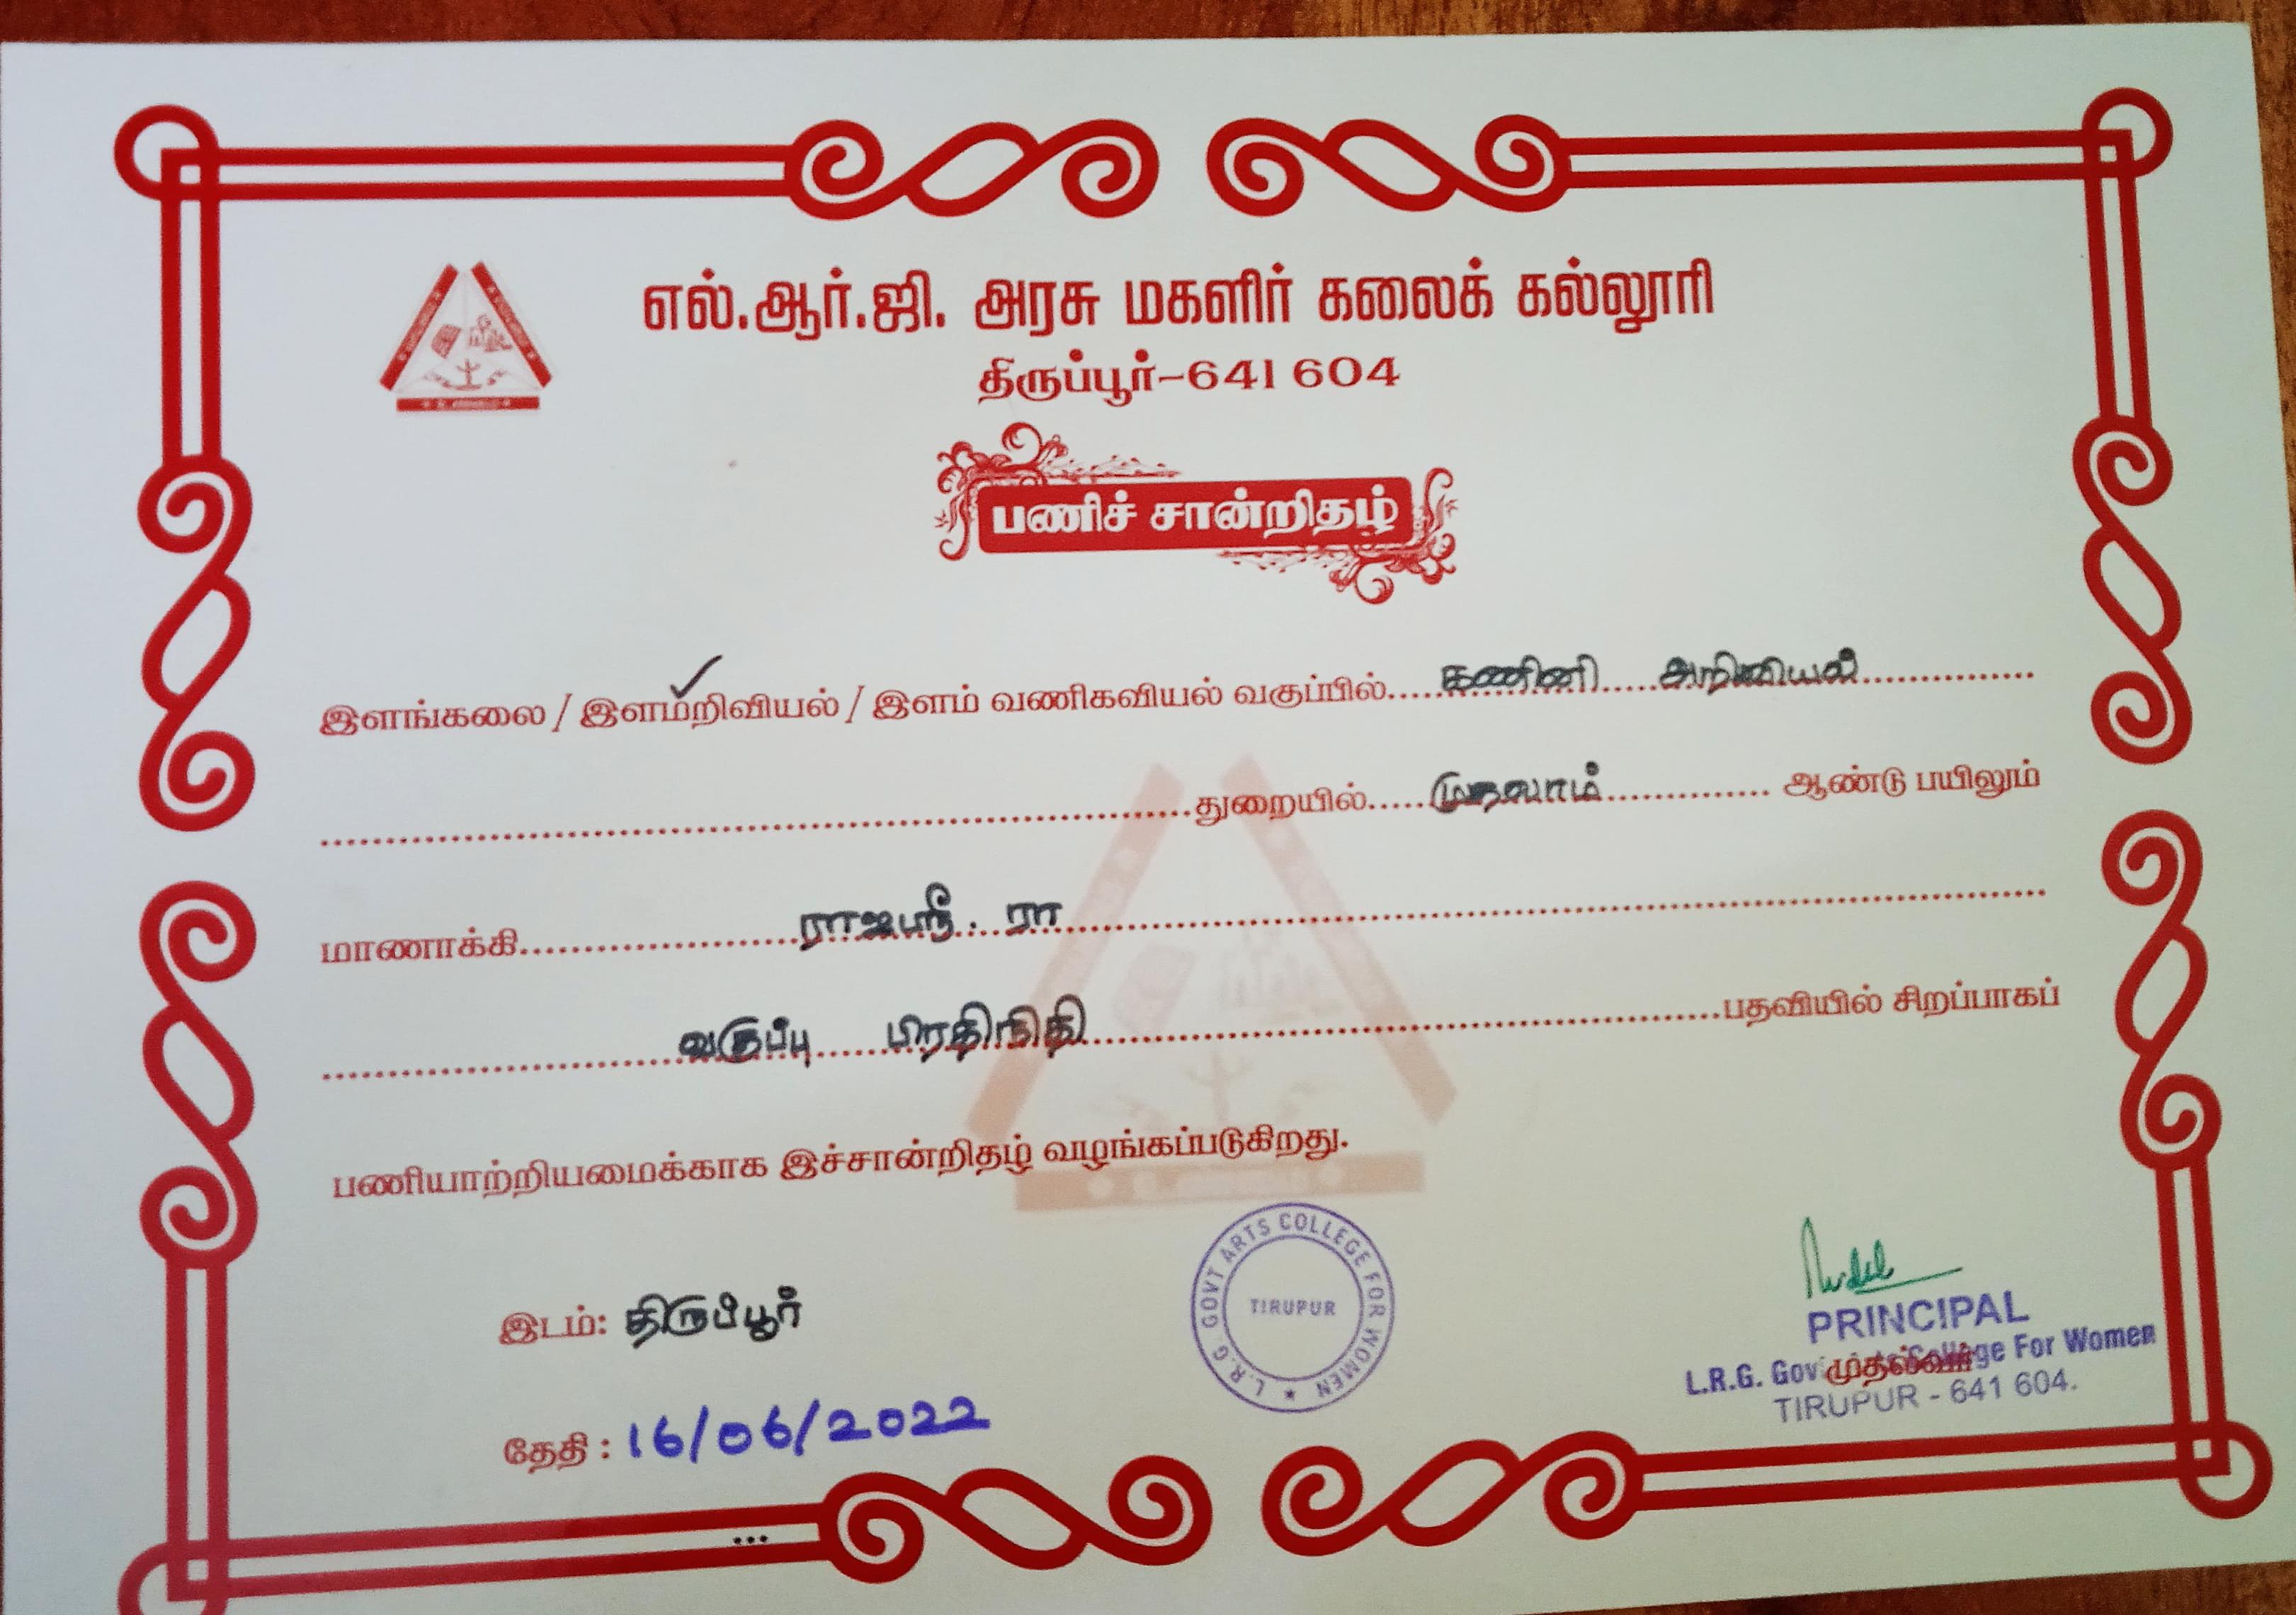 எல்.ஆர்.ஜி. அரசு மகளிர் கலைக் கல்லூரி
திருப்பூர்-641 604
பணிச் சான்றிதழ்
இளங்கலை / இளம்றிவியல் / இளம் வணிகவியல் வகுப்பில்.....கணினி.....அறிவியல்...............
...............துறையில்.....முதலாம்............... ஆண்டு பயிலும்
மாணாக்கி...............ராஜஸ்ரீ. ரா...............
...............வகுப்பு.....பிரதிநிதி...............பதவியில் சிறப்பாகப்
பணியாற்றியமைக்காக இச்சான்றிதழ் வழங்கப்படுகிறது.
இடம்: திருப்பூர்
தேதி : 16/06/2022
L.R.G. GOVT ARTS COLLEGE FOR WOMEN ★
TIRUPUR
PRINCIPAL
L.R.G. Gov முதல்வர் College For Women
TIRUPUR - 641 604.